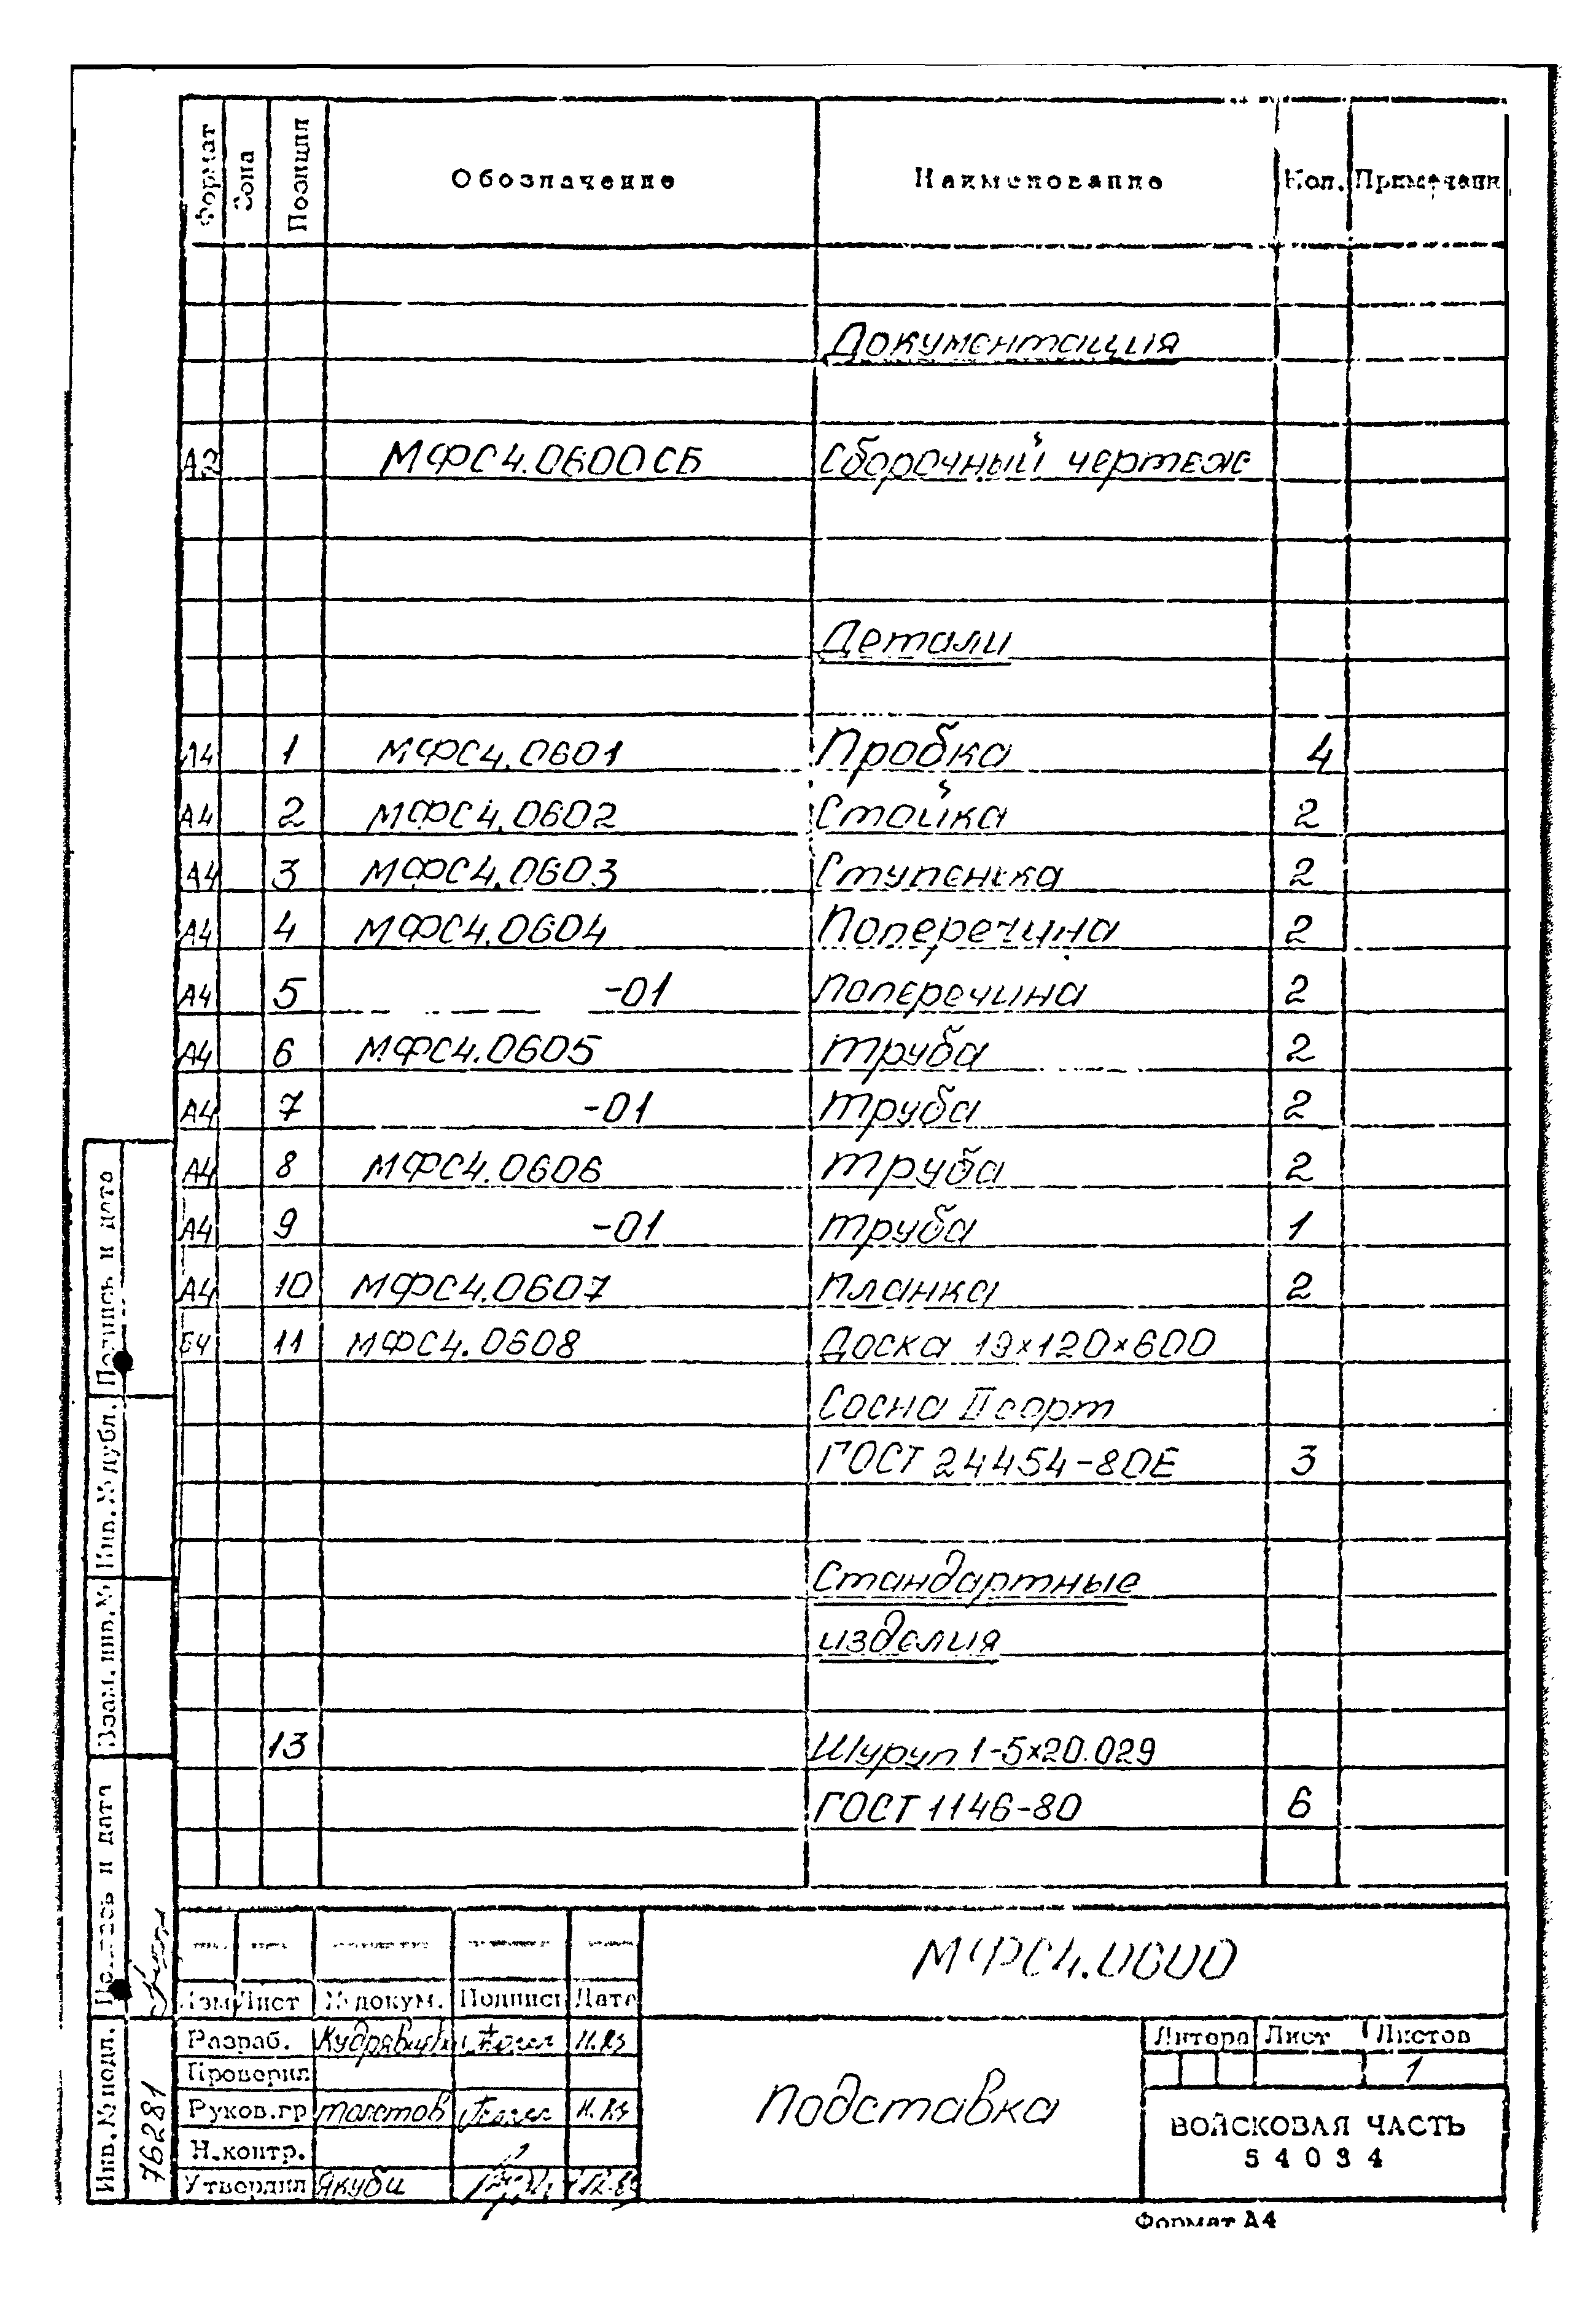 Формат Зона Позиция Обозначение Наименование Кол. Примечани
Документация
А2 МФС4.0600СБ Сборочный чертеж
Детали
А4 1 МФС4.0601 Пробка 4
А4 2 МФС4.0602 Стойка 2
А4 3 МФС4.0603 Ступенька 2
А4 4 МФС4.0604 Поперечина 2
А4 5 -01 Поперечина 2
А4 6 МФС4.0605 Труба 2
А4 7 -01 Труба 2
А4 8 МФС4.0606 Труба 2
А4 9 -01 Труба 1
А4 10 МФС4.0607 Планка 2
БЧ 11 МФС4.0608 Доска 19×120×600
Сосна II сорт
ГОСТ 24454-80Е 3
Стандартные
изделия
13 Шуруп 1-5×20.029
ГОСТ 1146-80 6
Подпись и дата
Инв.№ дубл.
Взам.инв.№
Подпись и дата
Инв.№ подл.
76281
МФС4.0600
Изм Лист № докум. Подпись Дата
Разраб.
Проверил
Руков.гр Толстов
Н.контр.
Утвердил Якуби
Подставка
Литера Лист Листов
1
ВОЙСКОВАЯ ЧАСТЬ
54034
Формат А4